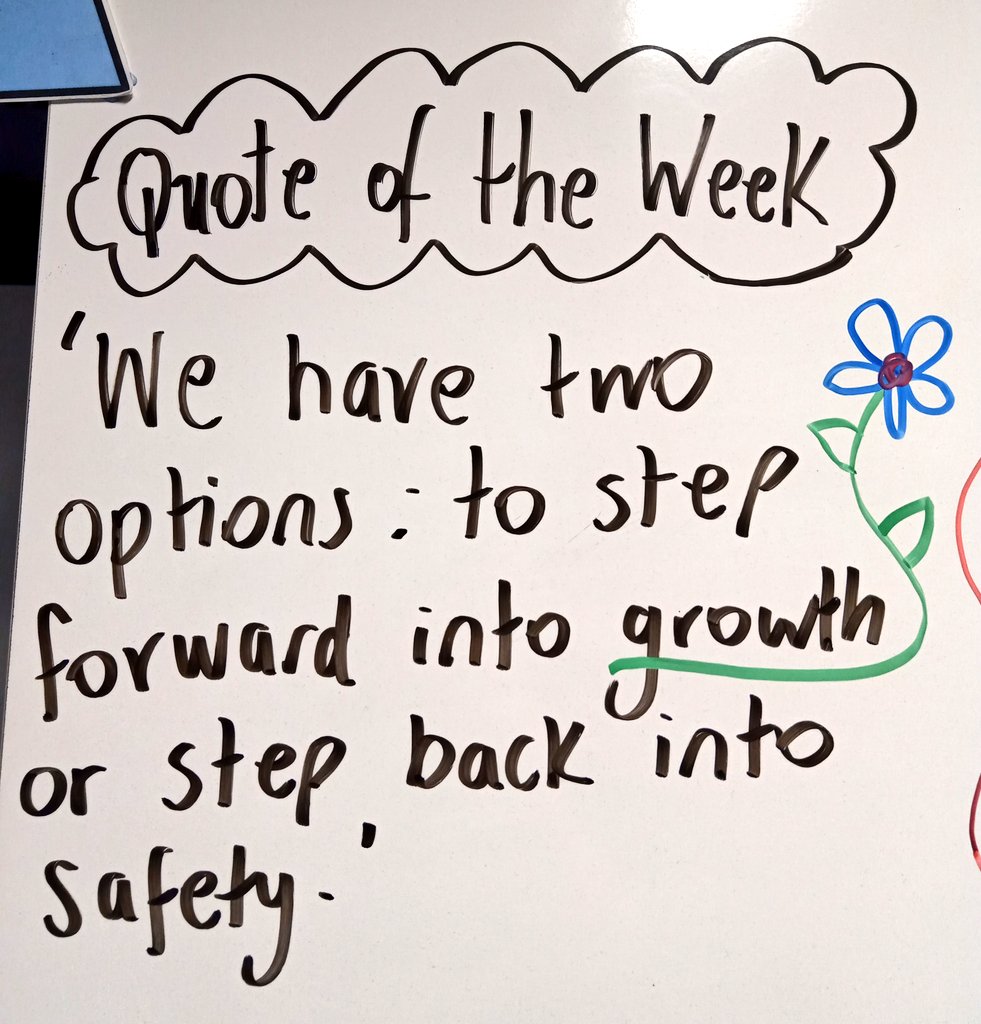 Quote of the Week
'We have two
options: to step
forward into growth
or step back into
safety.'